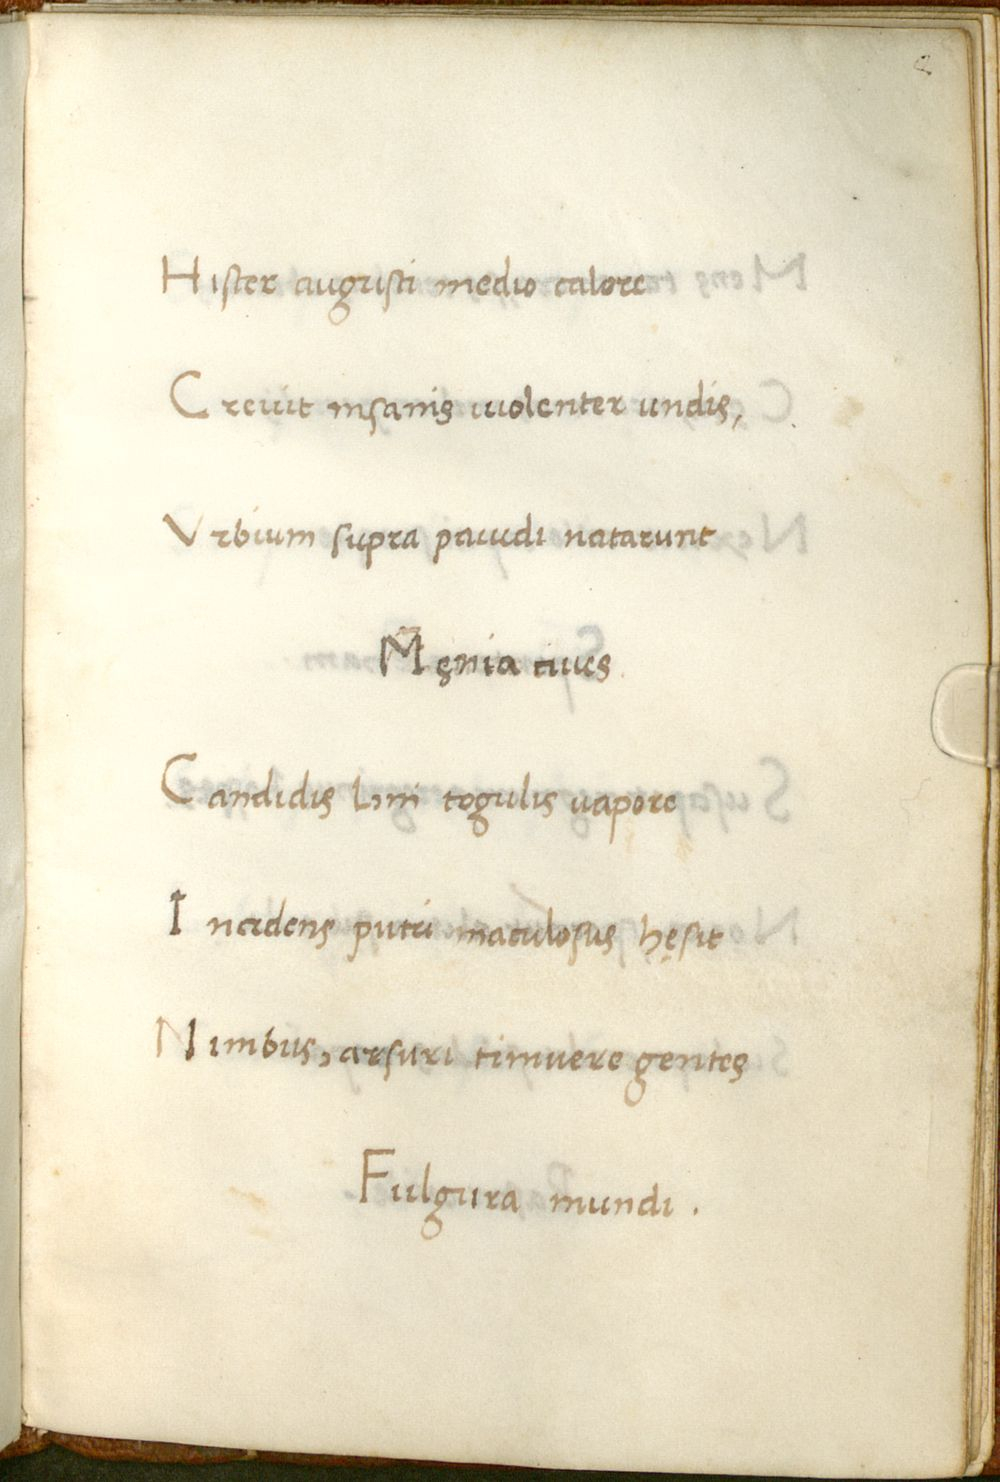 2
Hister augusti medio calore
Creuit insanis uiolenter undis,
Vrbium supra pauidi natarunt
Męnia ciues.
Candidis Lini togulis uapore
Incidens putri maculosus hęsit
Nimbus, arsuri timuere gentes
Fulgura mundi.